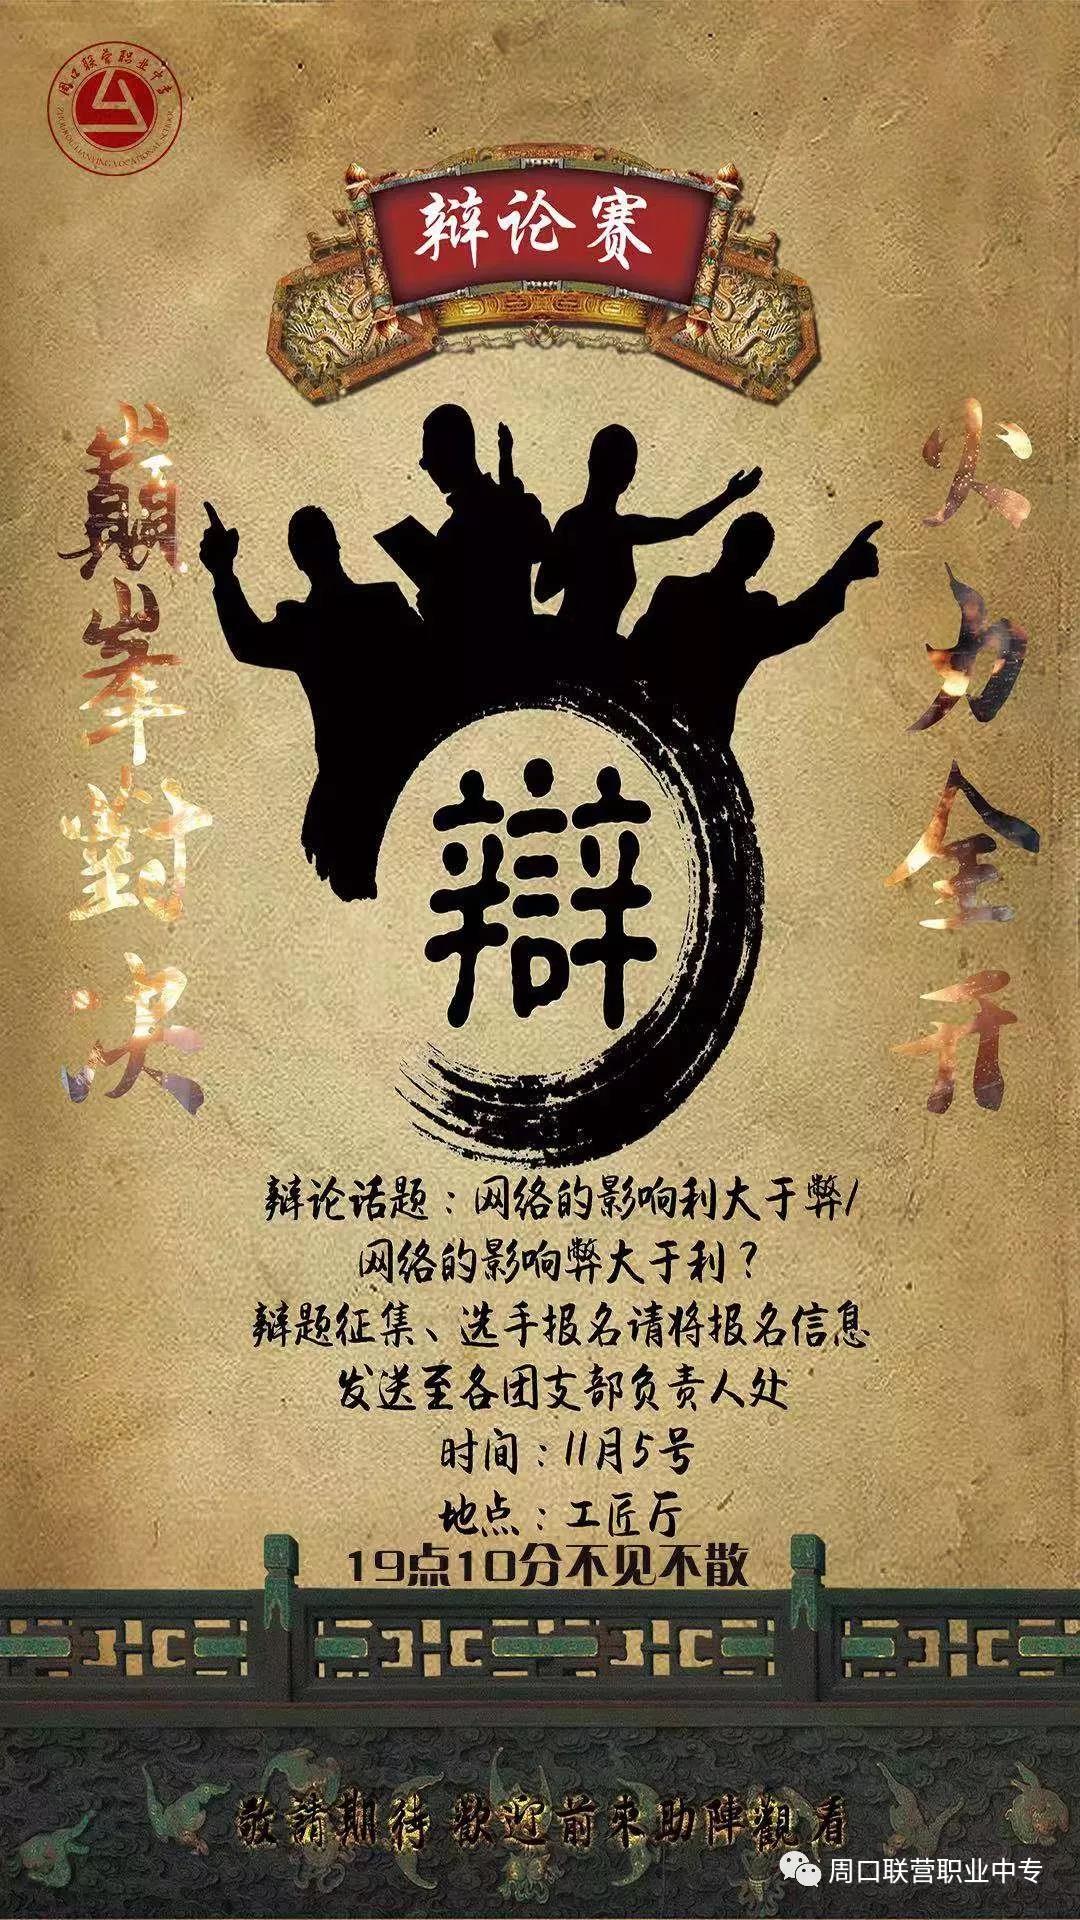 周口联营职业中专
ZHOUKOU LIANYING VOCATIONAL SCHOOL
辩论赛
巔峯對决
火力全开
辩
辩论话题：网络的影响利大于弊/
网络的影响弊大于利？
辩题征集、选手报名请将报名信息
发送至各团支部负责人处
时间：11月5号
地点：工匠厅
19点10分不见不散
敬請期待 歡迎前來助陣觀看
周口联营职业中专